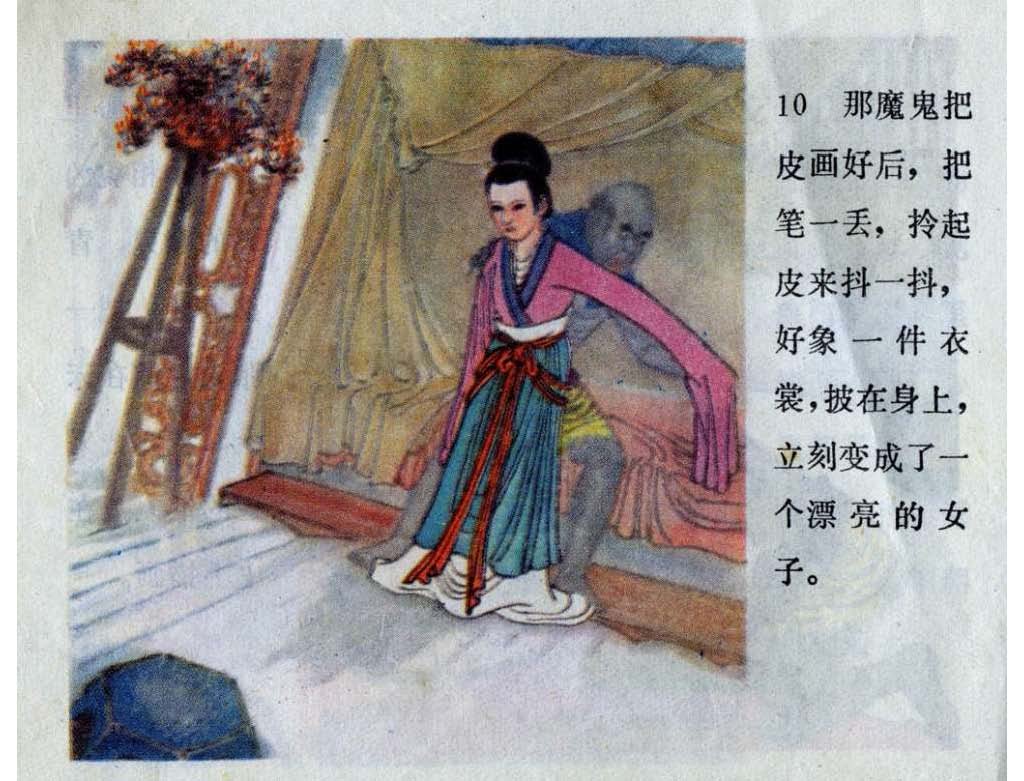 10 那魔鬼把
皮画好后，把
笔一丢，拎起
皮来抖一抖，
好象一件衣
裳，披在身上，
立刻变成了一
个漂亮的女
子。